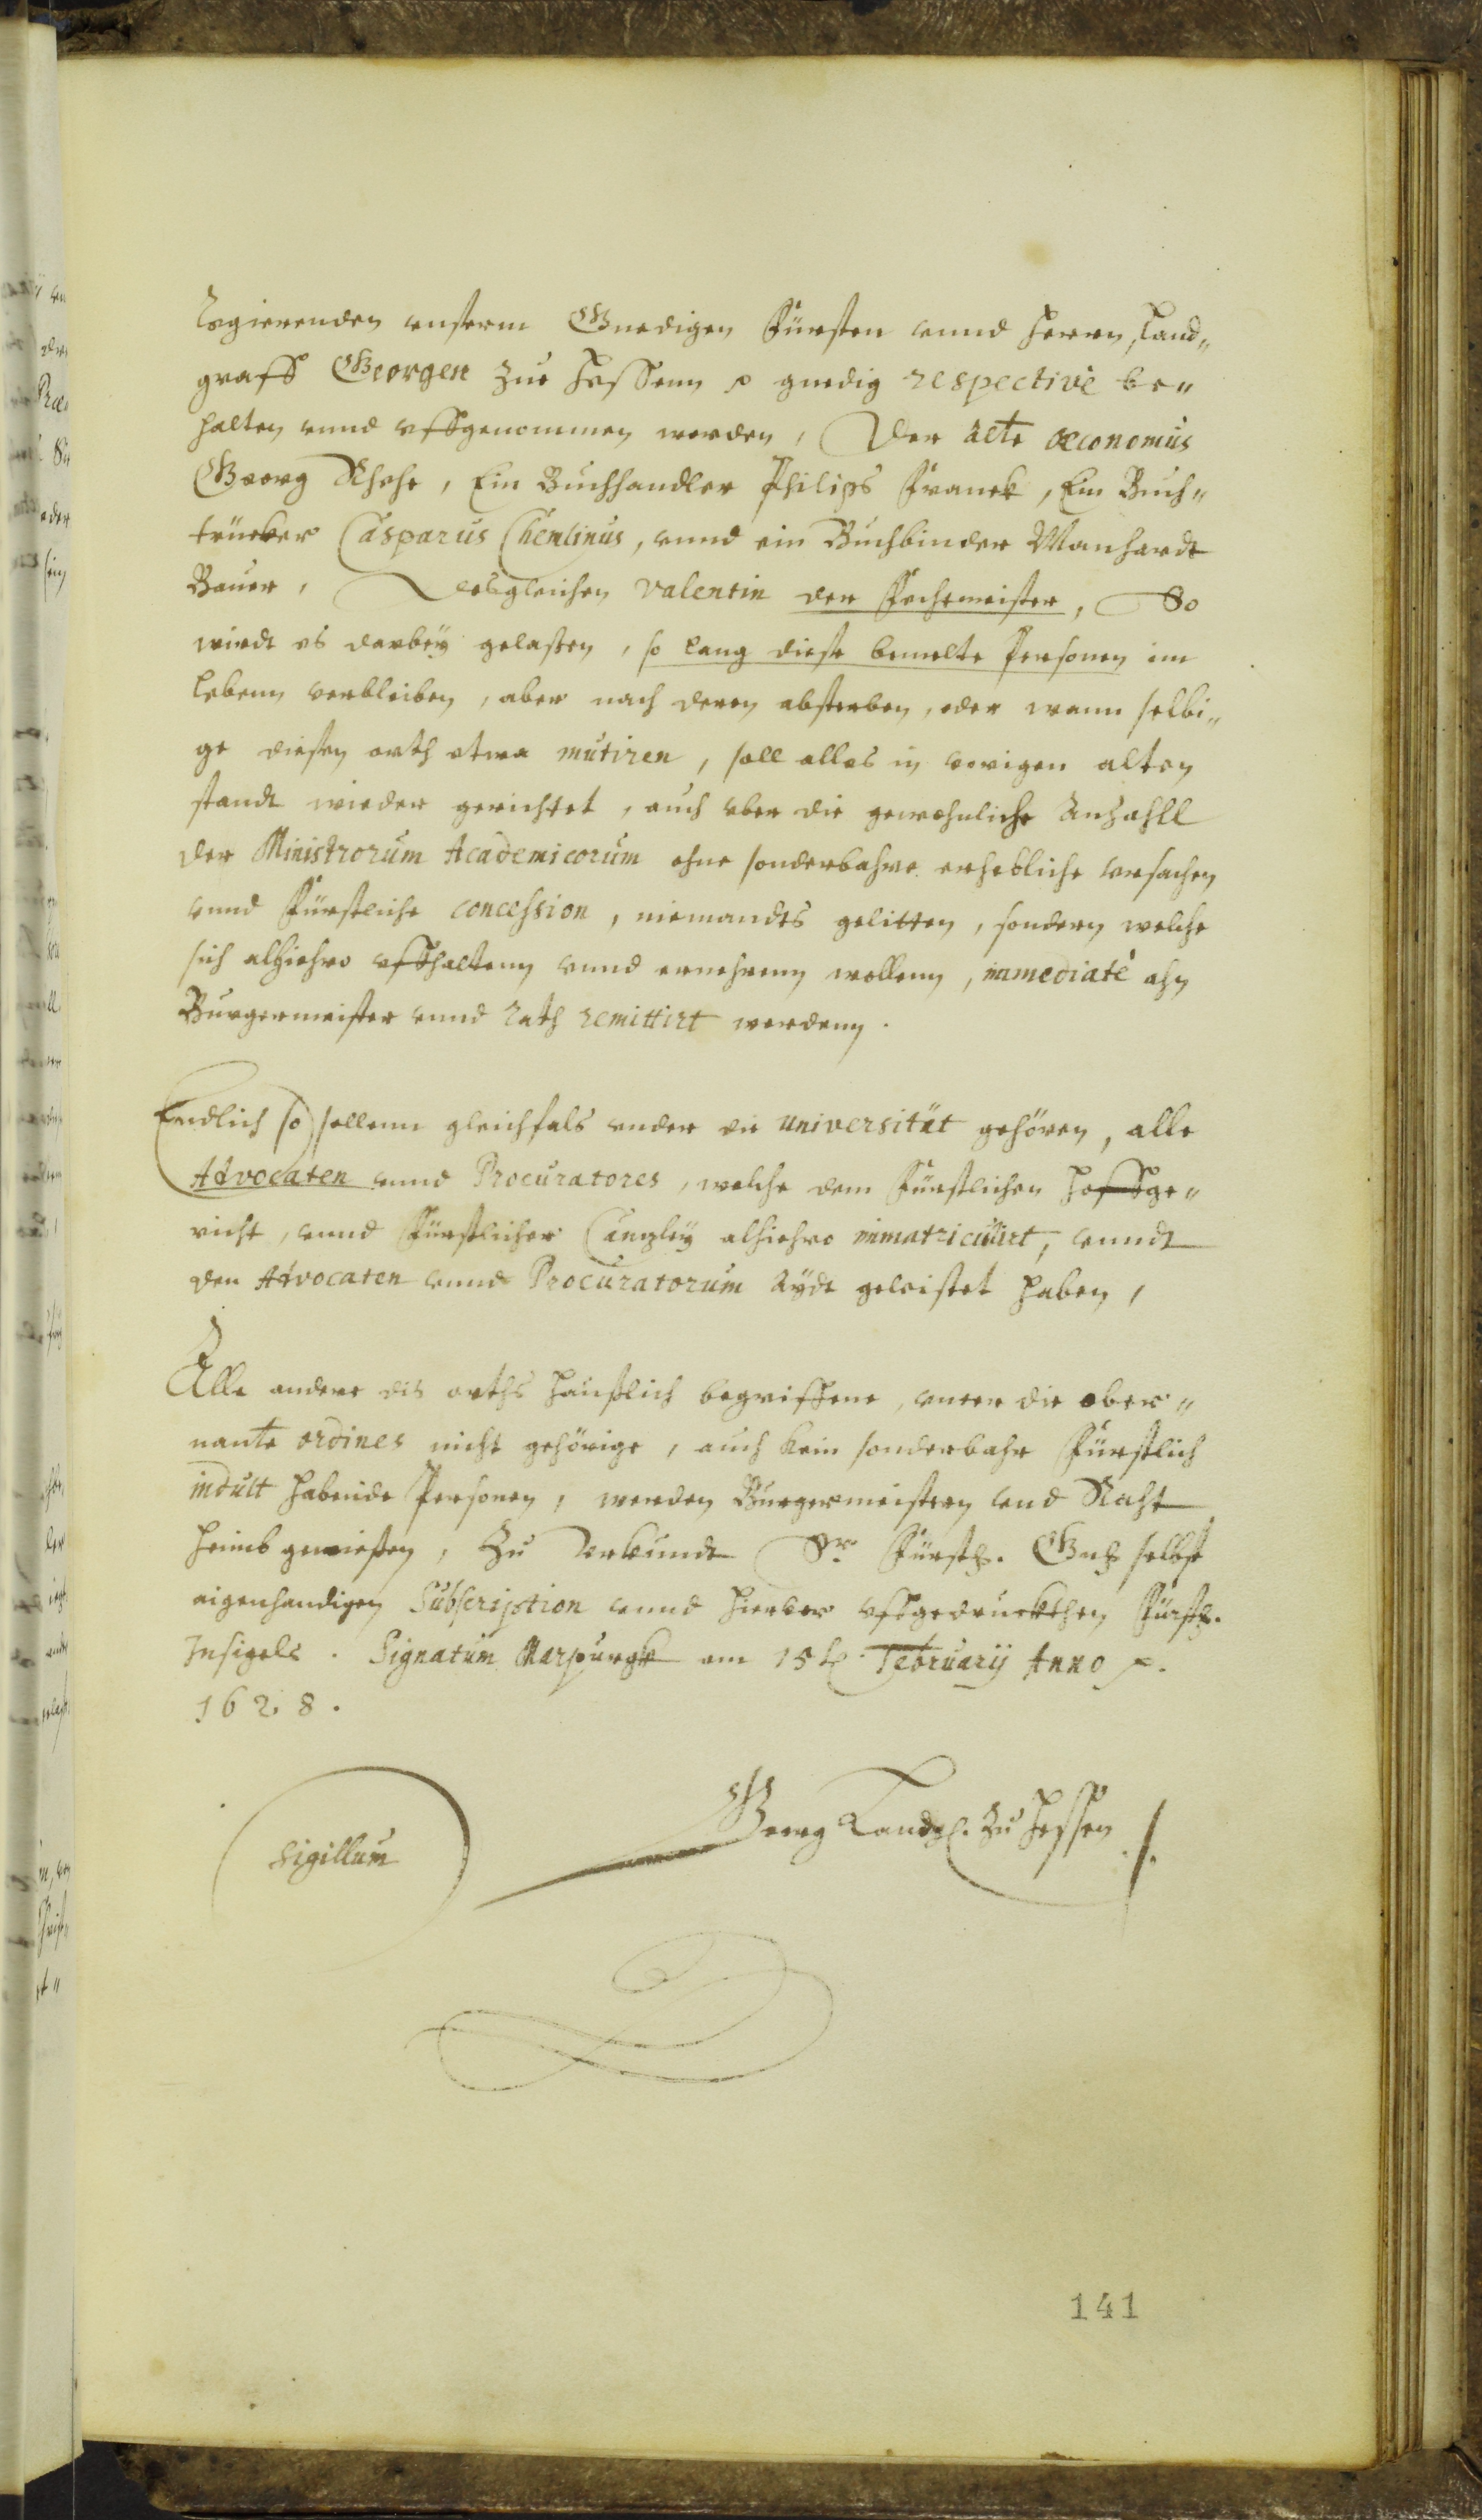 Regierenden vnserm Gnedigen Fürsten vnnd Herrn, Land„
graff Georgen zue Hessenn p gnedig respectivè be„
halten vnnd vffgenommen werden, Der alte œconomus
Georg , Ein Buchhandler Philips Franck, Ein Buch„
trücker Casparus Chemlinus, vnnd ein Buchbinder Manhardt
Bauer, Desgleichen Valentin der Fechtmeister, So
wirdt es darbeÿ gelaßen, so lang diese bemelte Personen im
Lebenn verbleiben, aber nach deren absterben, oder wann selbi„
ge diesen orth etwa mutiren, soll alles in vorigen alten
standt wieder gerichtet, auch vber die gewohnliche Anzahll
der Ministrorum Academicorum ohne sonderbahre erhebliche vrsachen
vnnd Fürstliche concession, niemandts gelitten, sondern welche
sich alhiehro vffhaltenn vnnd ernehrenn wollenn, immediatè ahn
Burgermeister vnnd Rath remittirt werdenn.
Endlich so sollenn gleichfals vnder die Universität gehören, alle
Advocaten vnnd Procuratores, welche dem Fürstlichen Hoffge„
richt, vnnd Fürstlicher Cantzleÿ alhiehro immatriculirt, vnndt
den Advocaten vnnd Procuratorum Aÿdt geleistet haben,
Alle andere dis orths häußlich begriffene, vnter die ober„
nante ordines nicht gehörige, auch kein sonderbahr Fürstlich
indult habende Personen, werden Burgermeistern vnd Raht
heimb gewießen, Zu Vrkundt Sr. Fürstl. Gnd. selbst
eigenhandigen Subscription vnnd hierber vffgedruckthen Fürstl.
Insigels. Signatum Marpurgk am 15t. Februarÿ Anno p.
1628.
Sigillum
Georg Landgf. zu Hessen
141